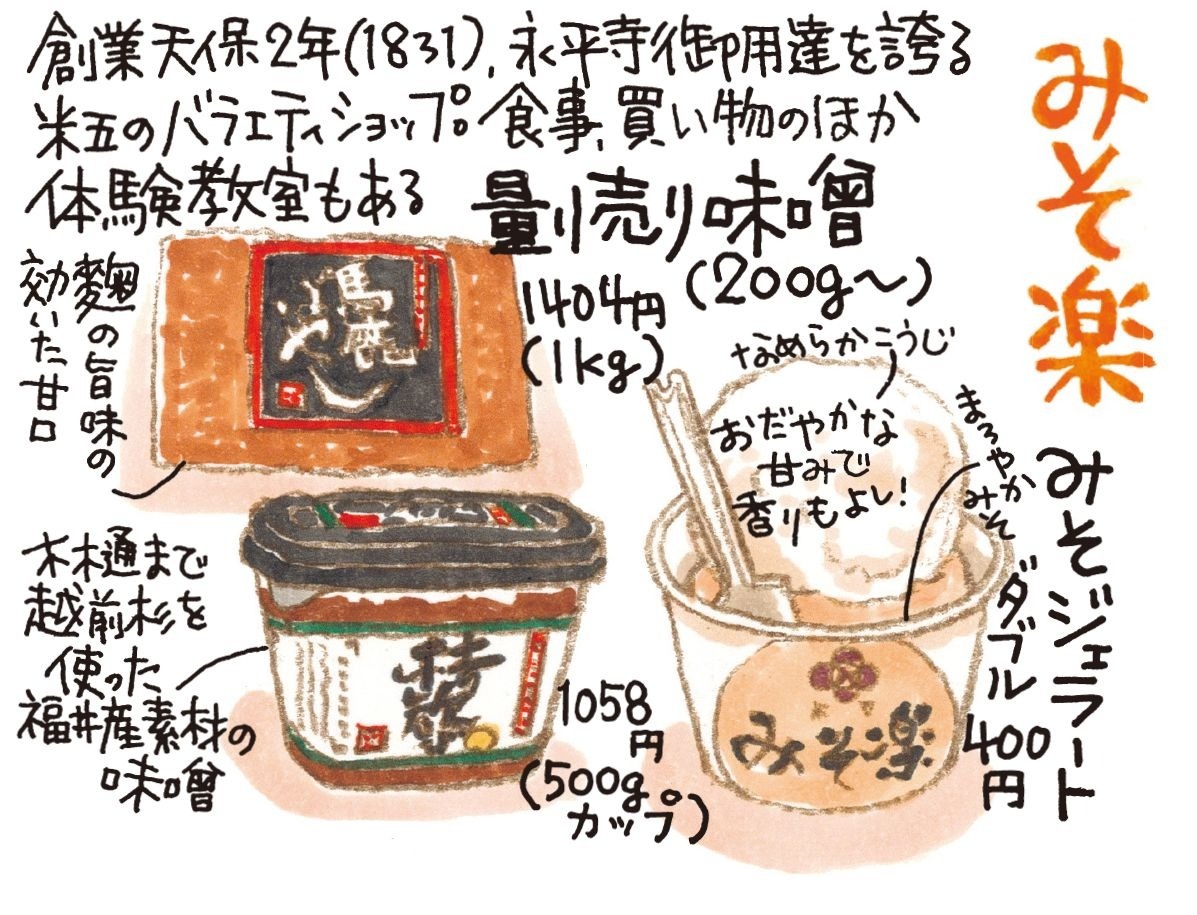 みそ楽
創業天保2年(1831)、永平寺御用達を誇る
米五のバラエティショップ。食事、買い物のほか
体験教室もある
量り売り味噌
(200g〜)
1404円
(1kg)
麴の旨味の
効いた甘口
木桶まで
越前杉を
使った
福井産素材の
味噌
1058
円
(500g
カップ)
なめらかこうじ
おだやかな
甘みで
香りもよし!
まろやか
みそ
みそジェラート
ダブル
400
円
みそ楽